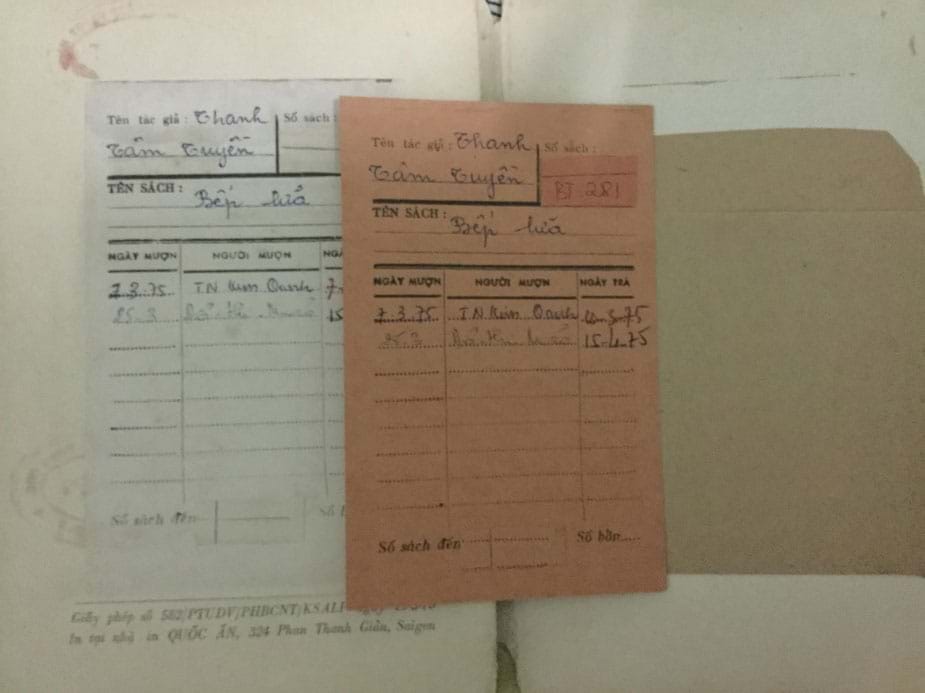 Tên tác giả : Thanh
Tâm Tuyền
Số sách :
TÊN SÁCH :
Bếp lửa
NGÀY MƯỢN NGƯỜI MƯỢN NGÀ
7.3.75 T.N Kim Oanh 7
25-3 15
Số sách đến
Số b
Giấy phép số 562/PTUDV/PHBCNT/KSALP
In tại nhà in QUỐC ẤN, 324 Phan Thanh Giản, Saigon
Tên tác giả : Thanh
Tâm Tuyền
Số sách :
BT 281
TÊN SÁCH :
Bếp lửa
NGÀY MƯỢN NGƯỜI MƯỢN NGÀY TRẢ
7.3.75 T.N Kim Oanh 75
25.3 15-4-75
Số sách đến
Số bồn